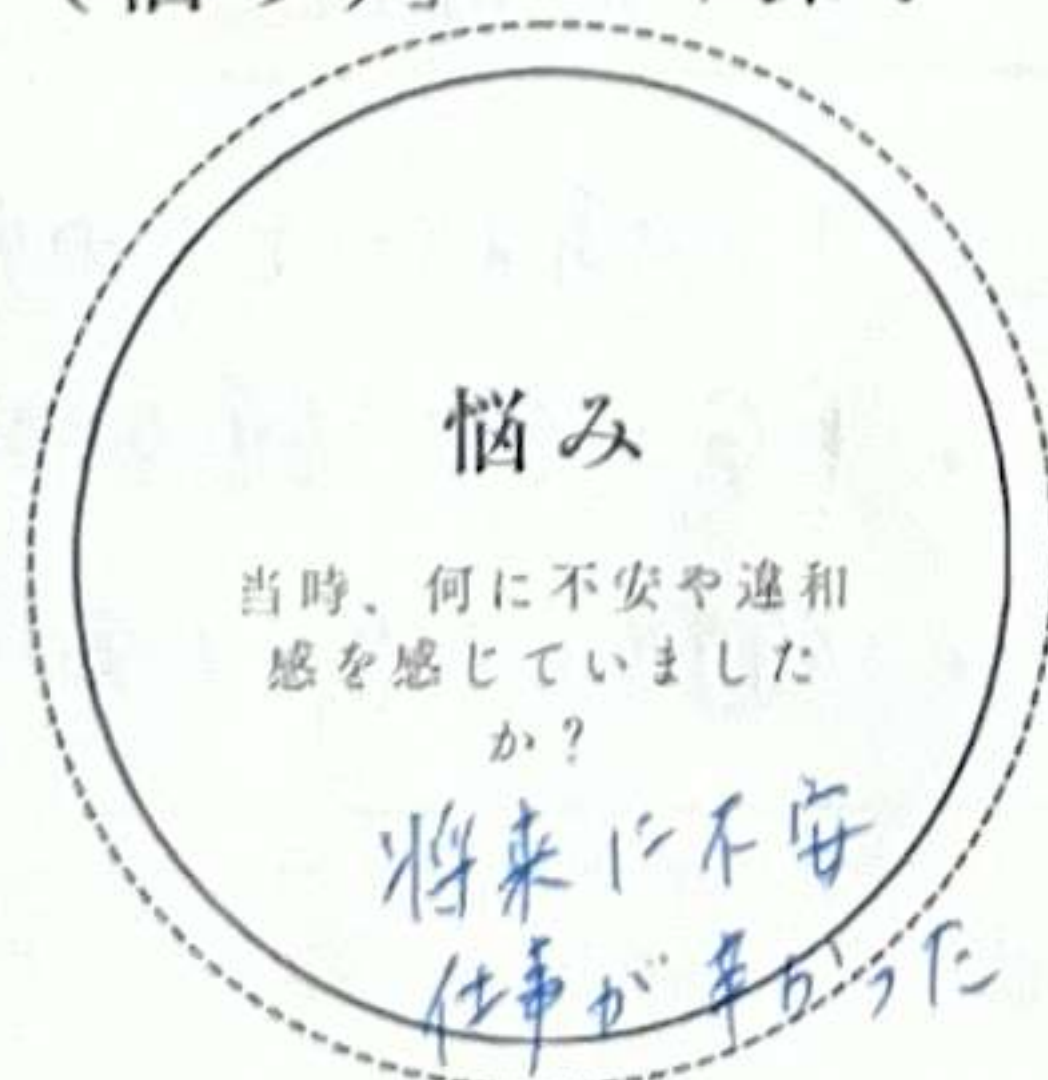 悩み
当時、何に不安や違和
感を感じていました
か？
将来に不安
仕事が辛かった